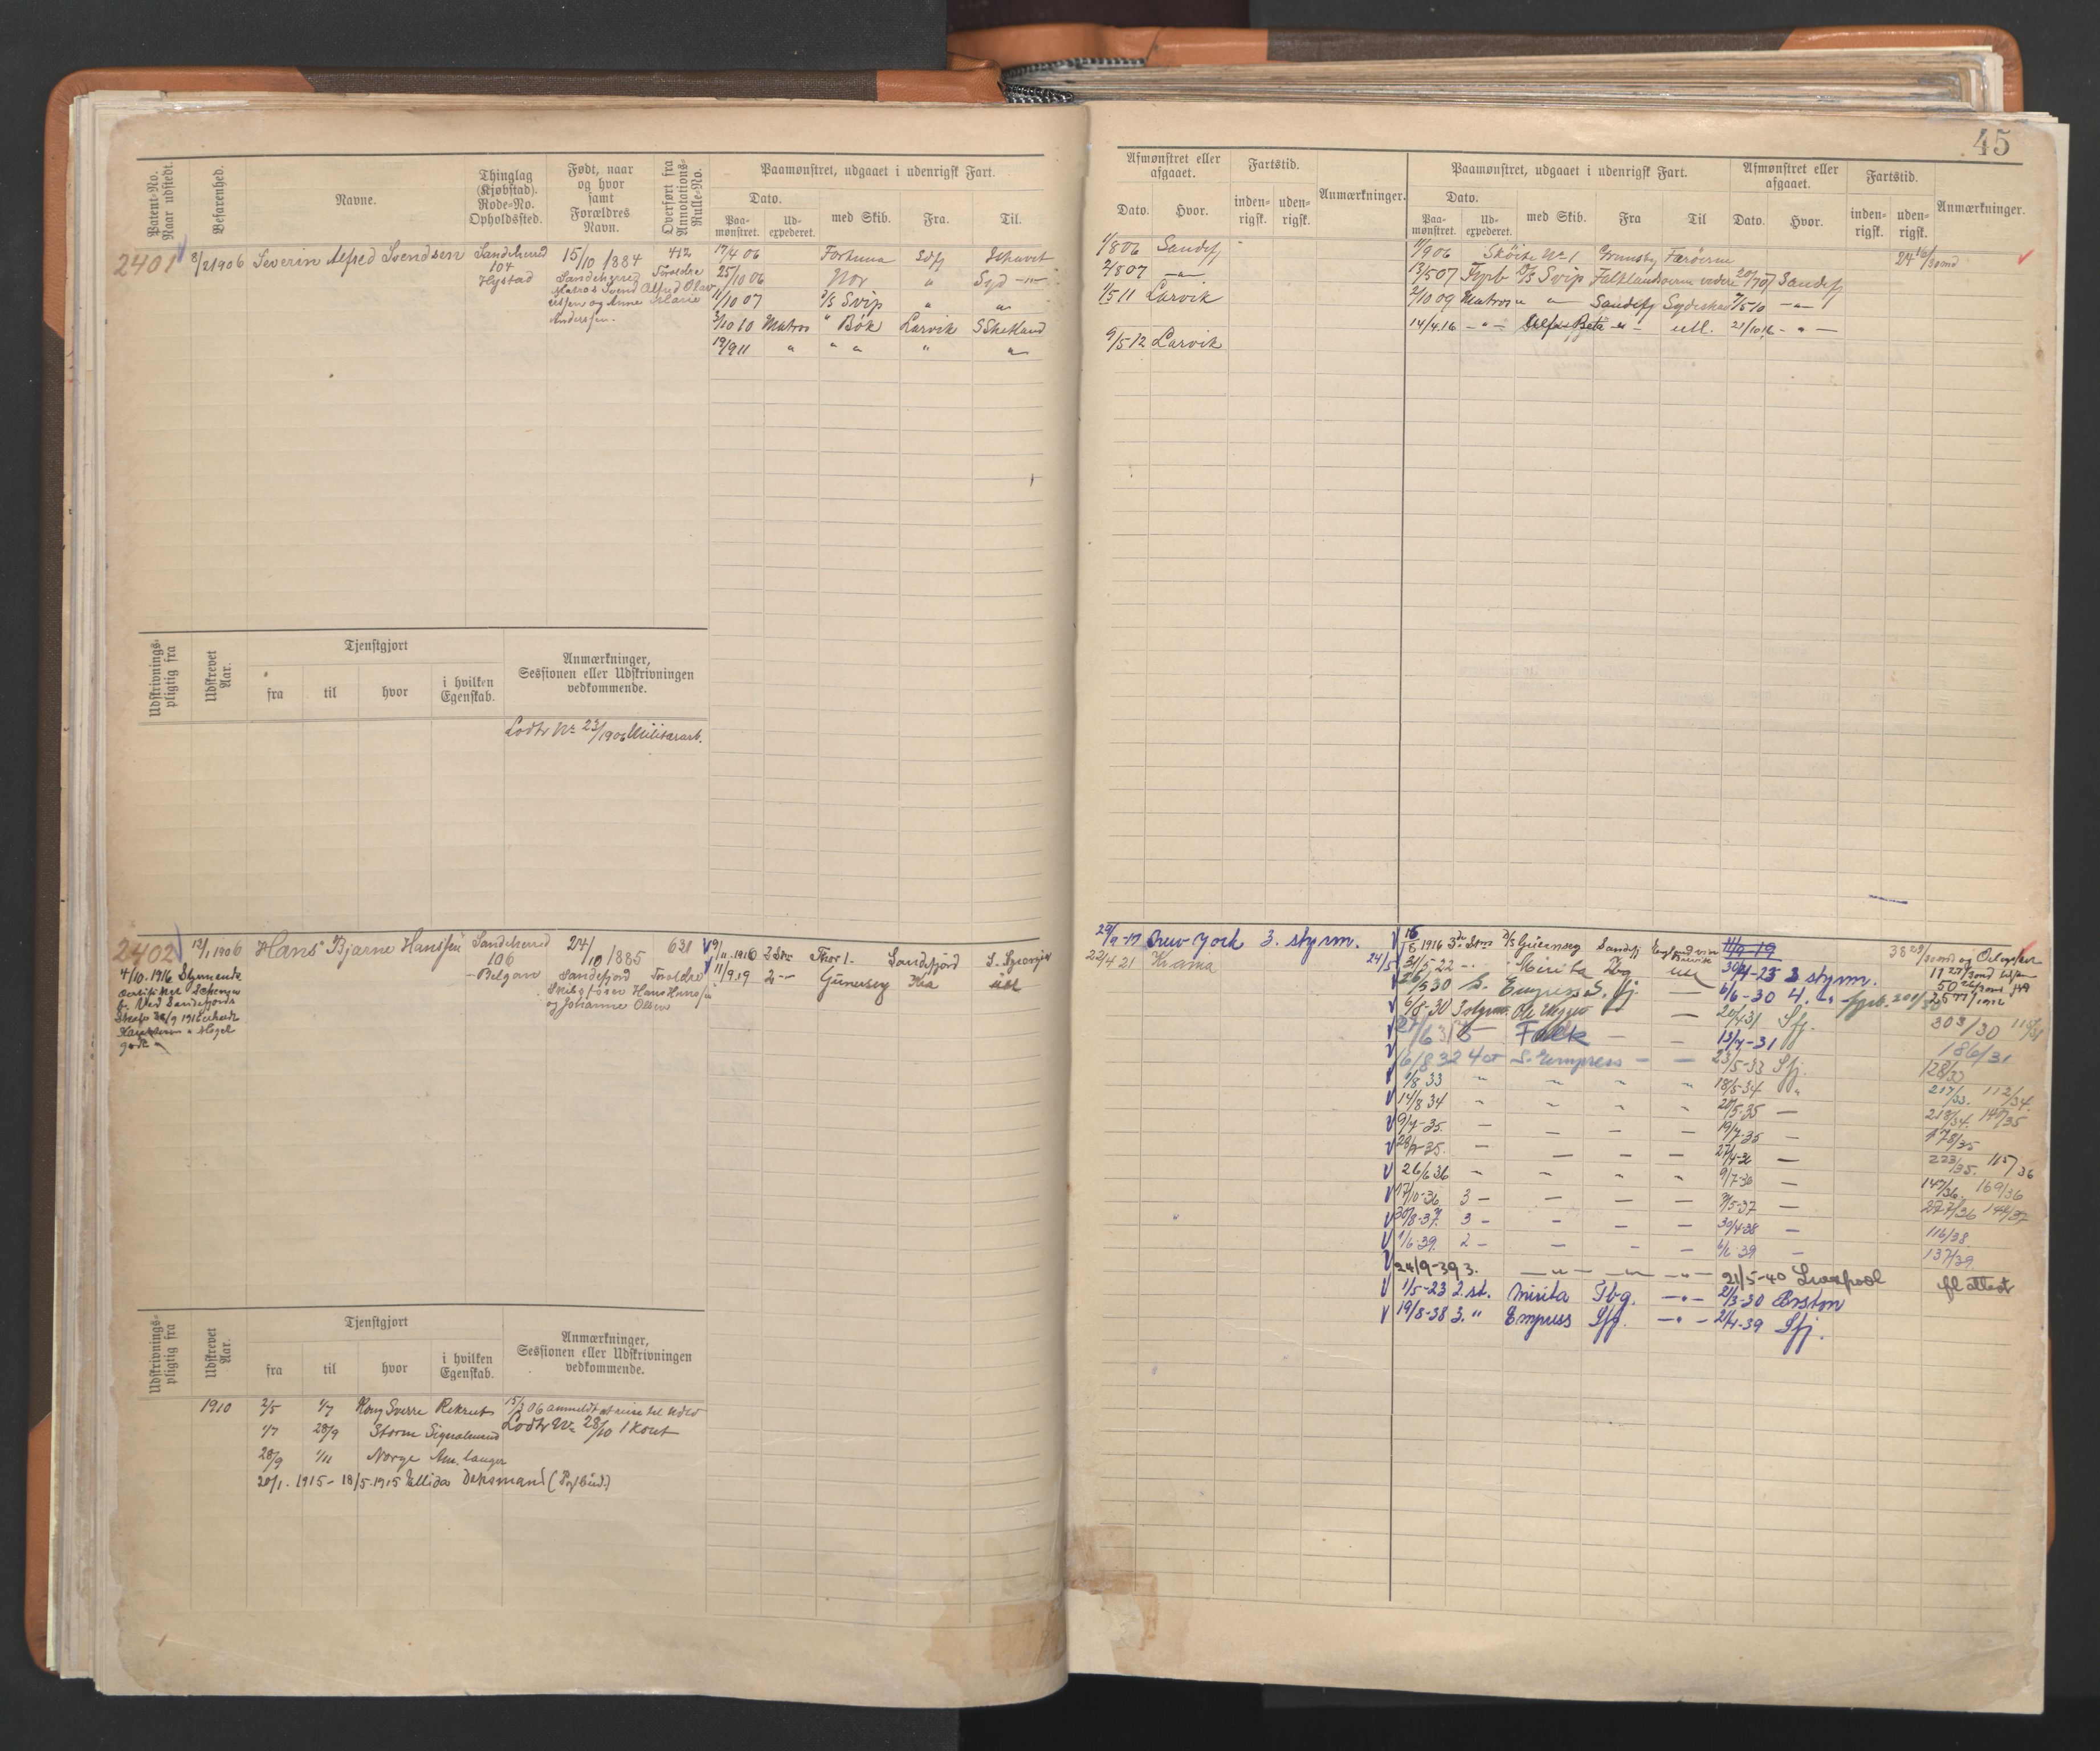 45
Patent-No. Naar udstedt.
Befarenhed.
Navne.
Thinglag (Kjøbstad). Rode-No. Opholdssted.
Født, naar og hvor samt Forældres Navn.
Overført fra Annotations-Rulle-No.
Paamønstret, udgaaet i udenrigsk Fart.
Dato.
Paa-mønstret. Ud-expederet. med Skib. Fra. Til.
Afmønstret eller afgaaet. Fartstid. Anmærkninger.
Dato. Hvor. inden-rigsk. uden-rigsk.
Paamønstret, udgaaet i udenrigsk Fart. Afmønstret eller afgaaet. Fartstid. Anmærkninger.
Dato.
Paa-mønstret. Ud-expederet. med Skib. Fra Til Dato. Hvor. inden-rigsk. uden-rigsk.
2401 8/2 1906 Severin Alfred Svendsen
Sandeherred
104
Hystad
15/10 1884
Sandeherred
Matros Svend Alfred Olav
og Anne Marie
Anderssen.
412
Foreldre
17/4 06 Fortuna Sdfj Ishavet
25/10 06 Nor " Syd -"-
11/10 07 D/S Svip " "
3/10 10 Matros " Bøk Larvik S Shetland
19/9 11 " " " " "
1/8 06 Sandefj
2/8 07 -"-
1/5 11 Larvik
9/5 12 Larvik
11/9 06 Skøite No 1 Grimsby Færøerne
24 16/30 mnd
13/5 07 Fyrb D/S Svip Falklandsøerne 20/7 07 Sandefj
2/10 09 Matros " " Sandefj Sydishav 9/5 10 -"-
14/4 16 -"- Alfa Beta -"- utl. 21/10 16 -"-
Udskrivnings-pligtig fra
Udskrevet Aar.
Tjenstgjort
fra til hvor i hvilken Egenskab.
Anmærkninger, Sessionen eller Udskrivningen vedkommende.
Lodtr No 23/1906 Militærarb.
2402 12/1 1906 Hans Bjarne Hanssen
4/10. 1916 Styrmands
Ved Sandefjords
Sandeherred
106
Pelgan
24/10 1885
Sandefjord
Skibsfører Hans Hanssen
og Johanne Olsen
631
Foreldre
9/11. 1916 2 Str Thor I. Sandefjord S. Georgia
11/9. 19 2 -"- Guernsey Kra utl
29/9-17 New-York 3. styrm.
22/4 21 Kr.ania
1916 3die Strm D/S Guernsey Sandefj
38 29/30 mnd og
24/5 31/5-22 -"- Mirita Tbg utl 30/4-23 2 styrm.
S. Empress S. fj. — 6/6-30 4. "
6/8-30 Ole Wegger — 20/4 31 Sfj. 303/30
27/6 31 Falk — — 13/7-31 186/31
16/8 32 4 st S. Empress — — 23/5-33 Sfj. 128/33
1/8 33 " " " " 18/5-34 " 217/33. 112/34.
14/8 34 " " " " 20/5-35 — 213/34. 140/35
9/7-35. — — — — 19/7-35 — 178/35
28/8-35. — — — — 27/4-36 — 223/35. 115/36
26/6 36 " " " " 9/7-36 — 147/36. 169/36
17/10-36. 3 — — — — 9/5-37 — 277/36 144/37
30/8-37. 3 — — — — 30/4-38 — 116/38
1/6-39. 2 — — — — 6/6 39 — 137/39.
24/9-39 3. -"- -"- -"- 21/5-40 Liverpool fl attest
1/5-23 2. st. Mirita Tbg. -"- 2/3-30 Boston
19/8-38 3. " Empress Sfj. -"- 24/4-39 Sfj.
Udskrivnings-pligtig fra
Udskrevet Aar.
Tjenstgjort
fra til hvor i hvilken Egenskab.
Anmærkninger, Sessionen eller Udskrivningen vedkommende.
1910 2/5 1/7 Kong Sverre Rekrut
1/7 28/9 Storm Signalmand
28/9 1/11 Norge
20/1. 1915 - 18/5. 1915 Ellida Dæksmand
15/3 06 anmeldt at reise
Lodtr No 28/10 1 Kont